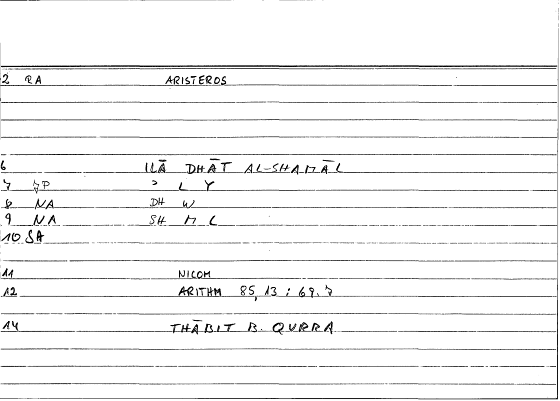 2 RA ARISTEROS
6 ILĀ DHĀT AL-SHAMĀL
7 7P ʾ L Y
8 NA DH W
9 NA SH M L
10 SA
11 NICOM
12 ARITHM 85, 13 ; 69. 7
14 THĀBIT B. QURRA